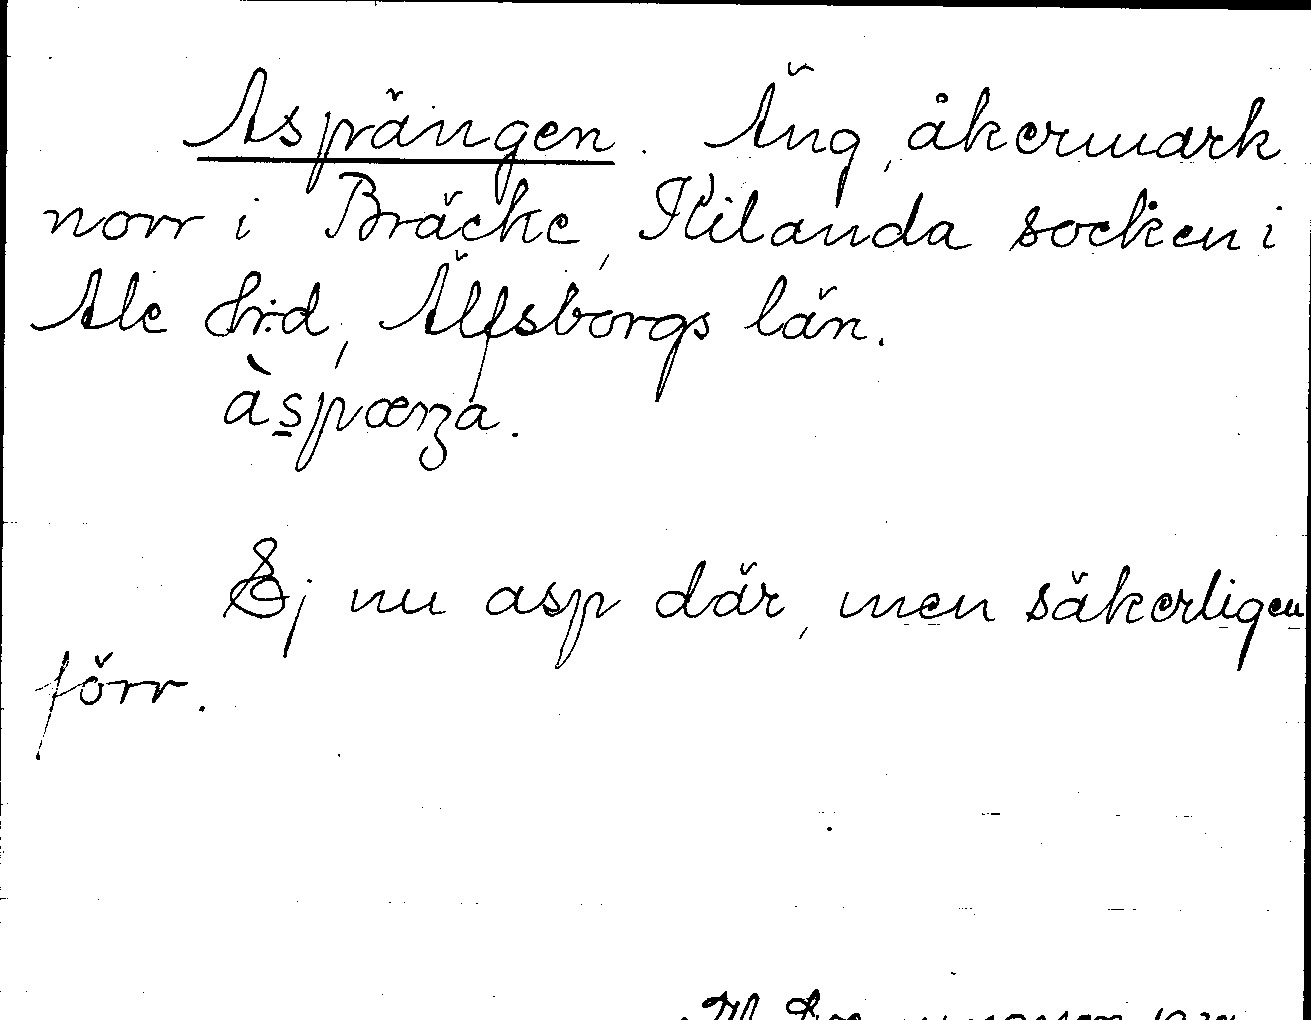 Asprängen. Äng, åkermark
norr i Bräcke, Kilanda socken i
Ale Hrd, Älfsborgs län.
àspænȥa.
Ej nu asp där, men säkerligen
förr.